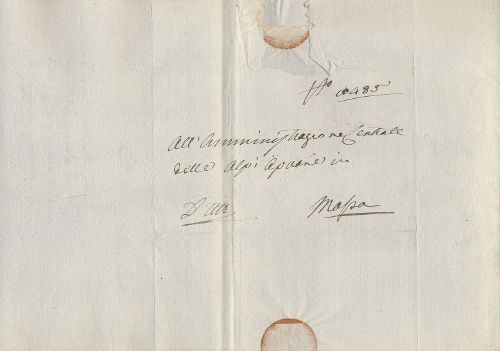 485
All' Amministrazione Centrale
delle Alpi Apuane in
Massa